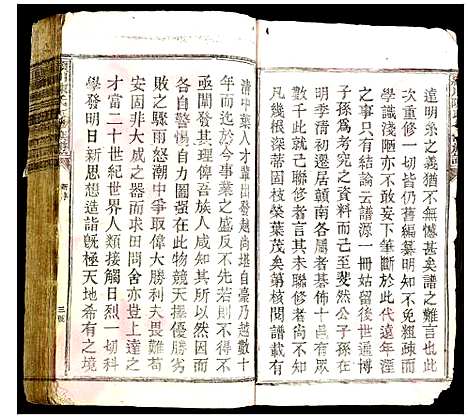 遠明系之義猶不無憾甚矣譜之難言也此
次重修一切皆仍舊編纂明知不免粗疎而
學識淺陋亦不敢妄下筆斷於此代遠年湮
之事只有結論云譜源一冊姑留後世通博
子孫爲考究之資料而已至斐然公子孫在
明季清初遷居贛南各屬者碁佈十邑有原
凡幾根深蒂固枝榮葉茂矣第核閱譜載有
清中葉人才輩出發越尚堪自豪乃越數十
年而至於今事業之盛反不如前則不得不
亟闡發其理俾吾族人咸知其所以然之故
各自警惕自力圖强在此物競天擇優勝劣
敗之驟雨怒潮中爭取偉大勝利夫畏難苟
安固非大成之器而求田問舍亦豈上達之
才當二十世紀世界人類接觸日烈一切科
學發明日新思想造詣旣極天地希有之境
三